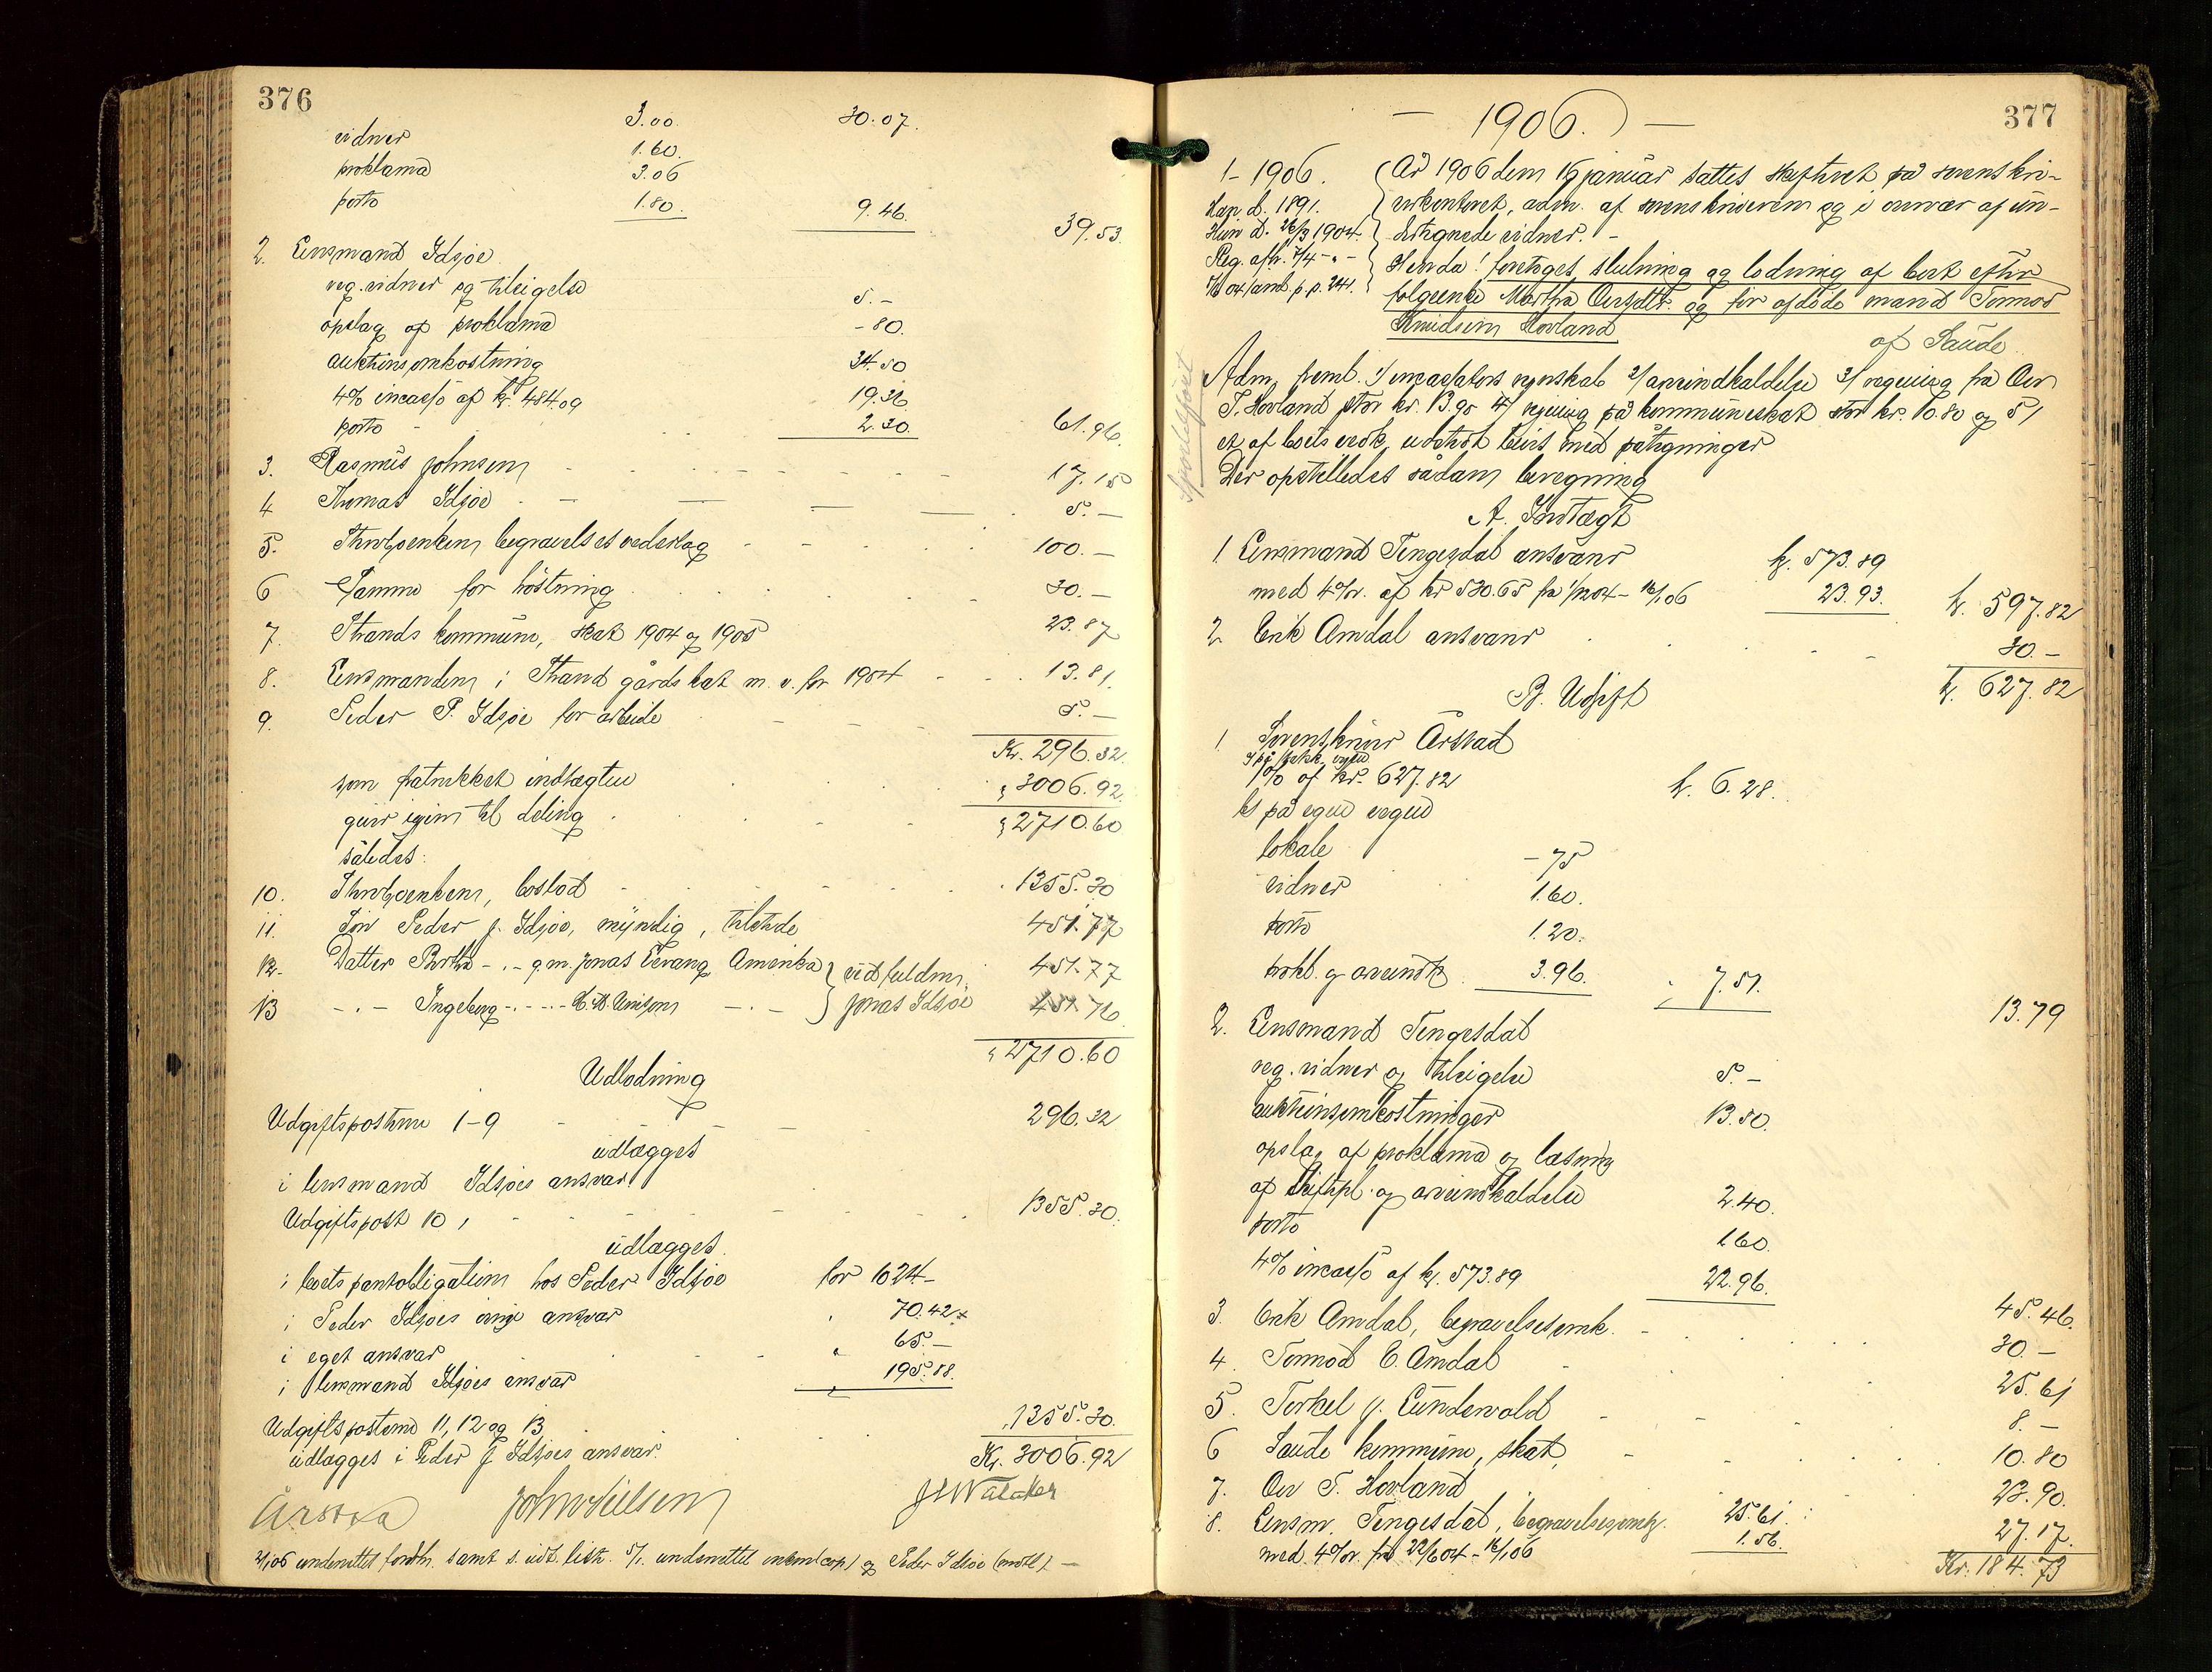 376
3.00 30.07.
vidner 1.60.
proklama 3.06
porto 1.80. 9.46. 39.53.
2. Lensmand Idsjøe
reg. vidner og tilsigelse 5.-
opslag af proklama -80.
auktionsomkostning 34.50
4% incasso af kr. 484.09 19.36
porto 2.30. 61.96.
3. Rasmus Johnsen 17.15
4 Thomas Idsjøe 5.-
5. begravelsesvederlag 100.-
6 Samme for høstning 30.-
7. Strands kommune, skat 1904 og 1905 23.87
8. Lensmanden i Strand gårdskat m. v. for 1904 13.81.
9. Peder P. Idsjøe for arbeide 5.-
Kr. 296.32.
som fratrukket indtægten " 3006.92.
gir igjen til deling " 2710.60
således:
10. boslod 1355.30
11. Søn Peder J. Idsjøe, myndig, tilstede 451.77
12. Datter Berthe -.- g.m. Jonas Amerika } ved fuldm. 451.77
13 -.- Ingeborg -.-.- -.- } Jonas Idsjøe 451.76
" 2710.60
Udlodning
Udgiftsposterne 1-9 296.32
udlægges
i lensmand Idsjøes ansvar
Udgiftspost 10, 1355.30.
udlægges
i boets pantobligation hos Peder Idsjøe for 1024-
i Peder Idsjøes øvrige ansvar " 70.42
i eget ansvar " 65.-
i lensmand Idsjøes ansvar " 195.88.
Udgiftsposterne 11, 12 og 13 " 1355.30.
udlægges i Peder J Idsjøes ansvar. Kr. 3006.92
Årstad John Nielsen
underrettet samt s. udt. underrettet og Peder Idsjøe
1906. 377
1-1906. År 1906 den 16 januar sattes skifteret på sorenskri-
Han d. 1891. verkontoret, adm. af sorenskriveren og i nærvær af un-
Hun d. 26/3 1904. dertegnede vidner.
Reg. afh. 7/4 -"- Herda! foretoges slutning og lodning af boet efter
p. p. 241. følgeenke Martha og før afdøde mand Tormod
Knudsen Hovland
af Saude
Adm. freml. 1/ incassators regnskab 2/ arveindkaldelse 3/ regning fra
T. Hovland stor kr. 4/ regning på kommuneskat stor kr. 10.80 og 5/
et af boets vedk. udstedt bevis med påtegninger
Der opstilledes sådan beregning
A. Indtægt
1 Lensmand Tengesdal ansvarer kr. 573.89
med 4% r. af kr 530.65 fra 1/12 04 - 16/1 06 23.93. kr. 597.82
2 Erik Amdal ansvarer 30.-
kr. 627.82
B. Udgift
1. Sorenskriver Årstad
1% af kr. 627.82 kr. 6.28.
lokale -75
vidner 1.60.
porto 1.20.
prokl. og arveindk. 3.96. " 7.51.
13.79
2. Lensmand Tengesdal
reg. vidner og tilsigelse 5.-
auktionsomkostninger 13.50.
opslag af proklama og læsning
af og arveindkaldelse 2.40.
porto 1.60.
4% incasso af kr. 573.89 22.96.
45.46.
3. Erik Amdal, begravelsesomk. 30.-
4. Tormod E. Amdal 25.61
5. Torkel J. 8.-
6 Saude kommune, skat, 10.80
7. T. Hovland 23.90.
8. Lensm. Tengesdal, begravelsesomk. 25.61.
med 4% r. fra 22/6 04 - 16/1 06 1.56. 27.17.
Kr. 184.73